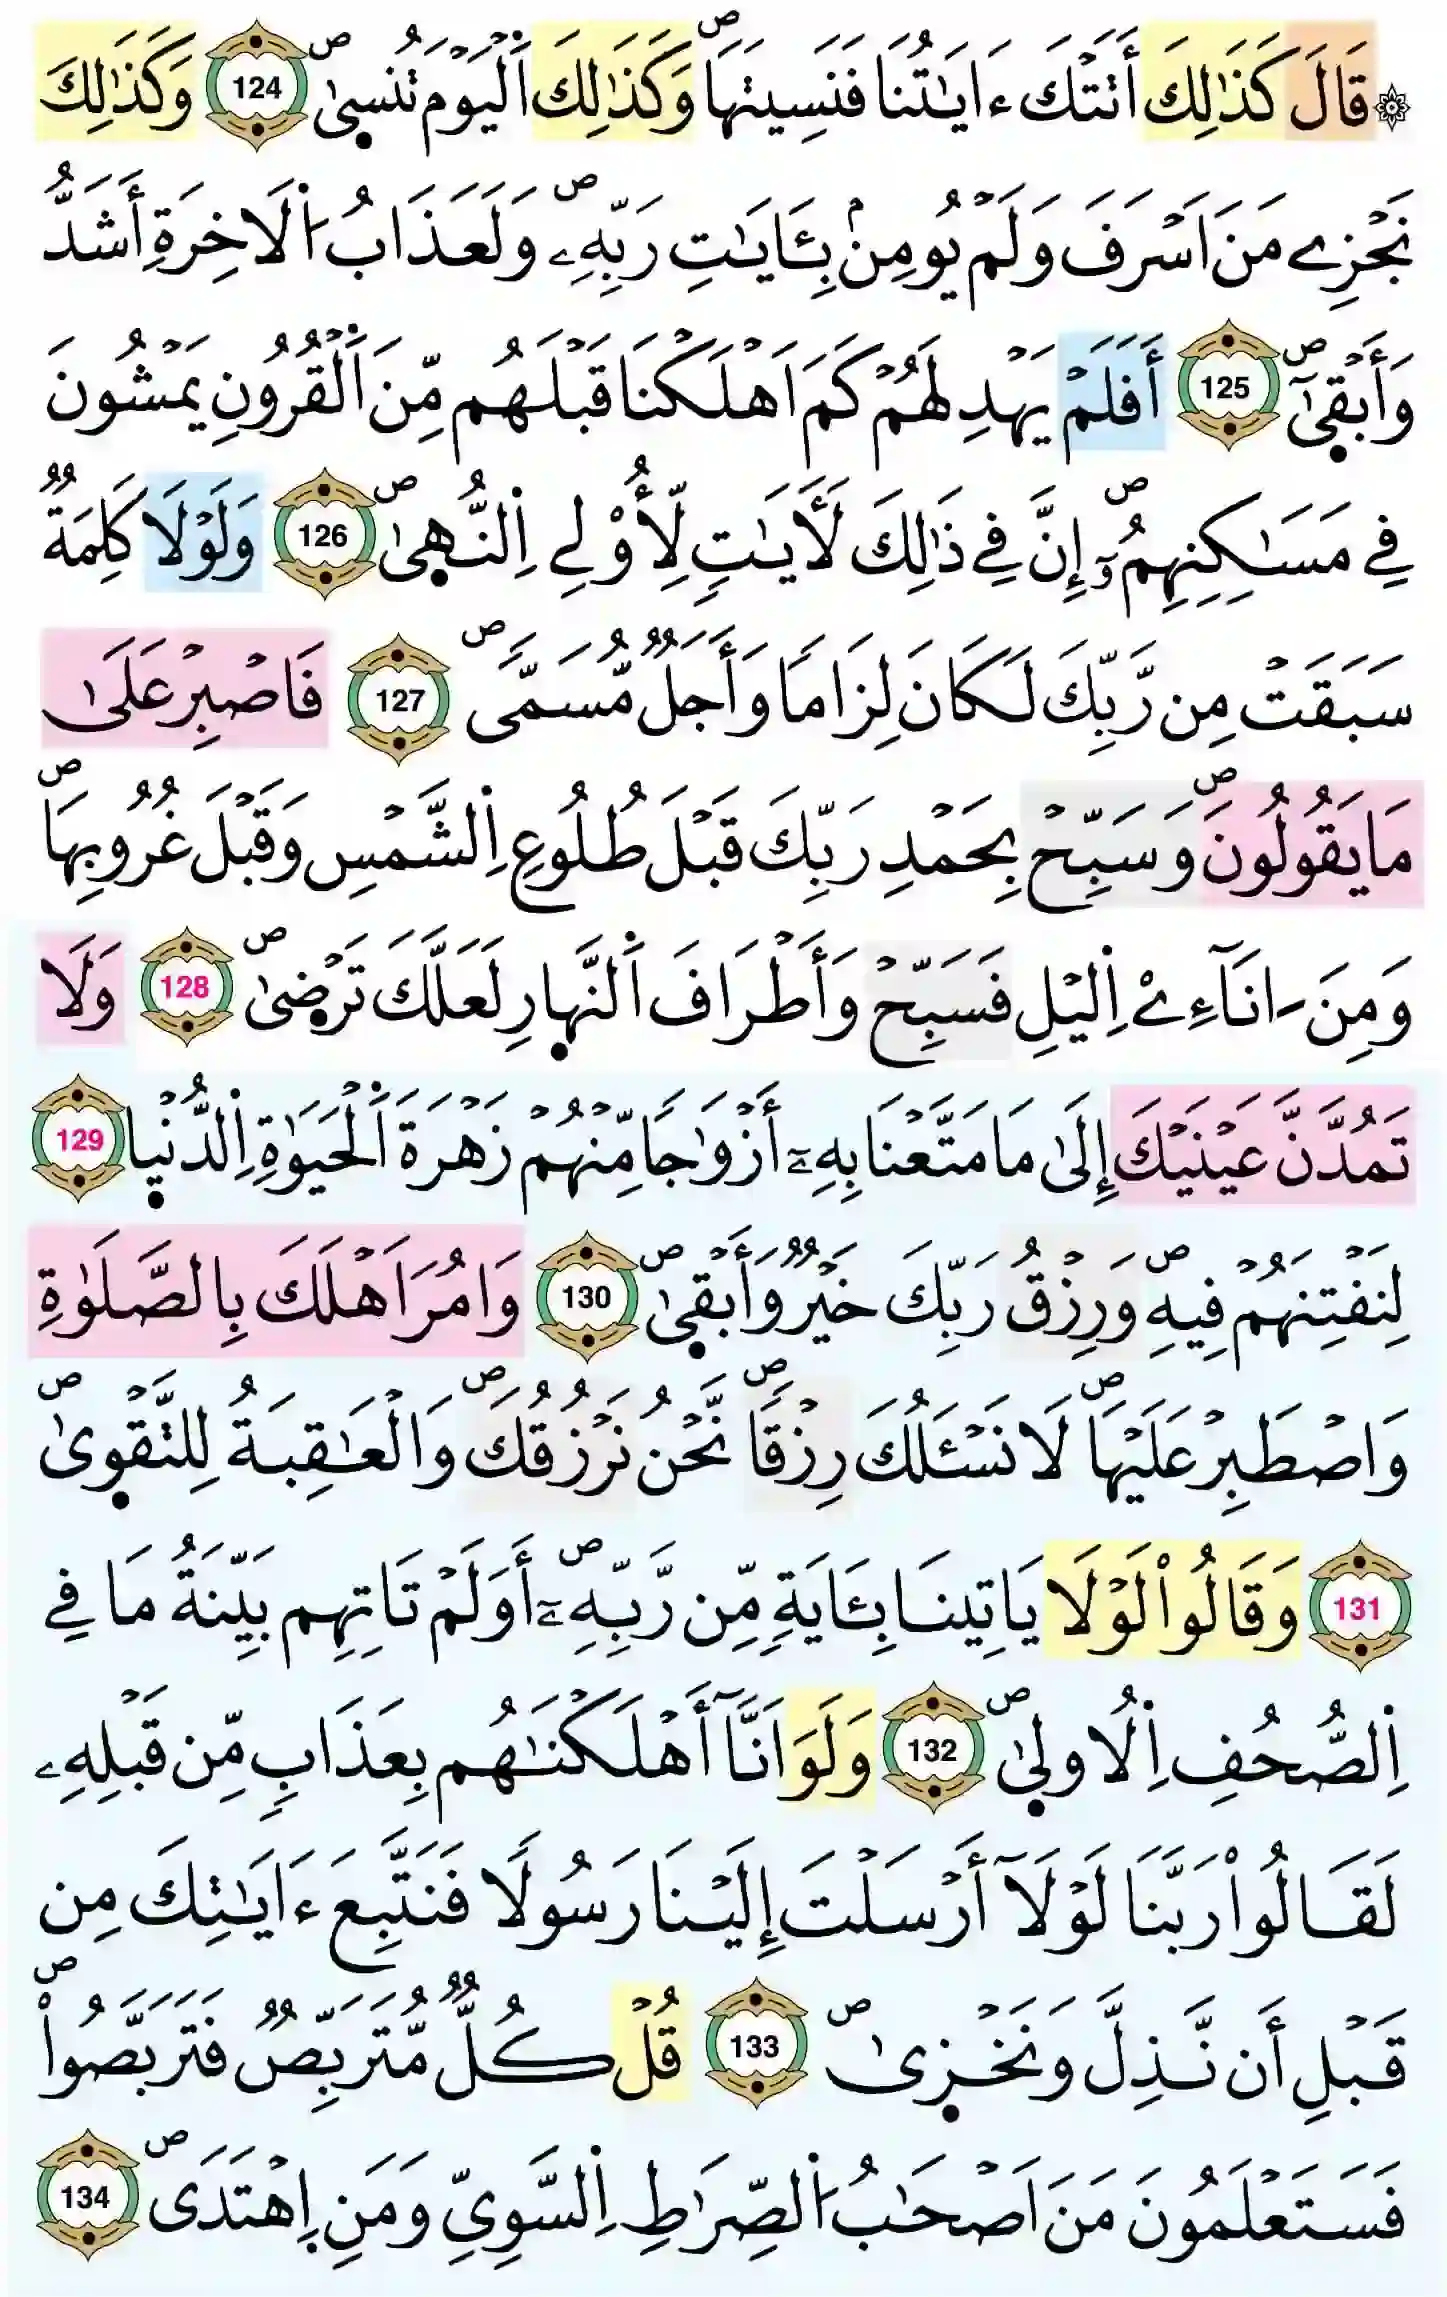 ۞ قَالَ كَذَٰلِكَ أَتَتْكَ ءَايَٰتُنَا فَنَسِيتَهَاۖ وَكَذَٰلِكَ اَ۬لْيَوْمَ تُنس۪يٰۖ 124 وَكَذَٰلِكَ
نَجْزِے مَنَ اَسْرَفَ وَلَمْ يُومِنۢ بِـَٔايَٰتِ رَبِّهِۦۖ وَلَعَذَابُ اُ۬لَاخِرَةِ أَشَدُّ
وَأَبْق۪يٰٓۖ 125 أَفَلَمْ يَهْدِ لَهُمْ كَمَ اَهْلَكْنَا قَبْلَهُم مِّنَ اَ۬لْقُرُونِ يَمْشُونَ
فِي مَسَٰكِنِهِمُۥٓۖ إِنَّ فِي ذَٰلِكَ لَأٓيَٰتٖ لِّأُوْلِي اِ۬لنُّه۪يٰۖ 126 وَلَوْلَا كَلِمَةٞ
سَبَقَتْ مِن رَّبِّكَ لَكَانَ لِزَاماٗ وَأَجَلٞ مُّسَمّيٗۖ 127 فَاصْبِرْ عَلَىٰ
مَا يَقُولُونَۖ وَسَبِّحْ بِحَمْدِ رَبِّكَ قَبْلَ طُلُوعِ اِ۬لشَّمْسِ وَقَبْلَ غُرُوبِهَاۖ
وَمِنَ اٰنَآءِےْ اِ۬ليْلِ فَسَبِّحْ وَأَطْرَافَ اَ۬لنَّه۪ارِ لَعَلَّكَ تَرْض۪يٰۖ 128 وَلَا
تَمُدَّنَّ عَيْنَيْكَ إِلَىٰ مَا مَتَّعْنَا بِهِۦٓ أَزْوَٰجاٗ مِّنْهُمْ زَهْرَةَ اَ۬لْحَيَوٰةِ اِ۬لدُّنْي۪ا 129
لِنَفْتِنَهُمْ فِيهِۖ وَرِزْقُ رَبِّكَ خَيْرٞ وَأَبْق۪يٰۖ 130 وَامُرَ اَهْلَكَ بِالصَّلَوٰةِ
وَاصْطَبِرْ عَلَيْهَاۖ لَا نَسْـَٔلُكَ رِزْقاٗۖ نَّحْنُ نَرْزُقُكَۖ وَالْعَٰقِبَةُ لِلتَّقْو۪يٰۖ
131 وَقَالُواْ لَوْلَا يَاتِينَا بِـَٔايَةٖ مِّن رَّبِّهِۦٓۖ أَوَلَمْ تَاتِهِم بَيِّنَةُ مَا فِي
اِ۬لصُّحُفِ اِ۬لُاول۪يٰۖ 132 وَلَوَ اَنَّآ أَهْلَكْنَٰهُم بِعَذَابٖ مِّن قَبْلِهِۦ
لَقَالُواْ رَبَّنَا لَوْلَآ أَرْسَلْتَ إِلَيْنَا رَسُولاٗ فَنَتَّبِعَ ءَايَٰتِكَ مِن
قَبْلِ أَن نَّذِلَّ وَنَخْز۪يٰۖ 133 قُلْ كُلّٞ مُّتَرَبِّصٞ فَتَرَبَّصُواْۖ
فَسَتَعْلَمُونَ مَنَ اَصْحَٰبُ اُ۬لصِّرَٰطِ اِ۬لسَّوِيِّ وَمَنِ اِ۪هْتَدَىۖ 134